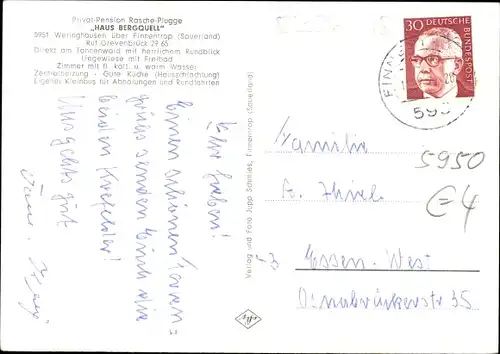 Privat-Pension Rasche-Plugge
„HAUS BERGQUELL"
5951 Weringhausen über Finnentrop (Sauerland)
Ruf Grevenbrück 29 65
Direkt am Tannenwald mit herrlichem Rundblick
Liegewiese mit Freibad
Zimmer mit fl. kalt. u. warm Wasser
Zentralheizung - Gute Küche (Hausschlachtung)
Eigener Kleinbus für Abholungen und Rundfahrten
Ihr Lieben!
Einen schönen Toren=
gruß senden Euch die
beiden Krefelder!
Uns geht's gut
Verlag und Foto Jupp Schmies, Finnentrop (Sauerland)
30
DEUTSCHE BUNDESPOST
FINN
595
Familie
5950
€ 4
Essen-West
Osnabrückerstr 35